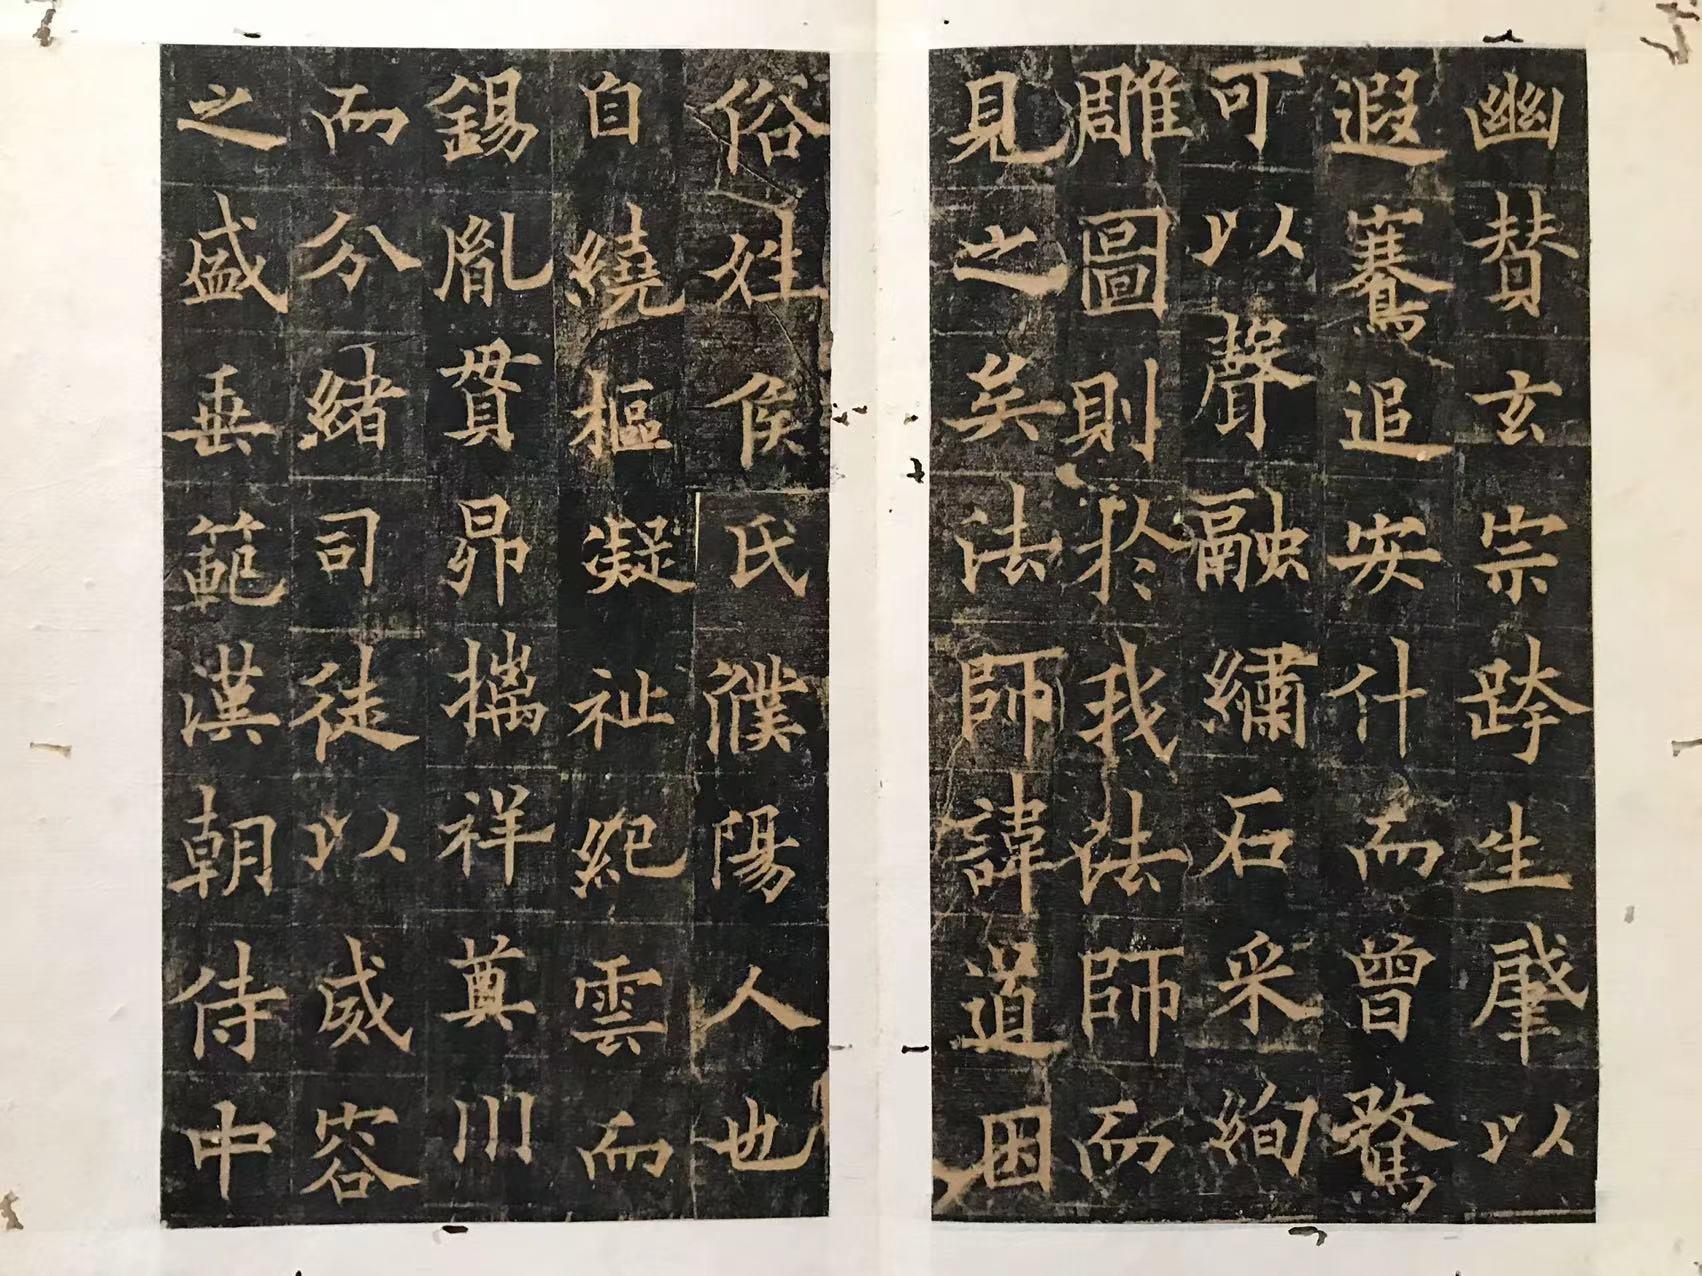 幽賛玄宗跨生肇以
遐騫追安什而曾騖
可以聲融繡石采絢
雕圖則於我法師而
見之矣法師諱道因
俗姓侯氏濮陽人也
自繞樞凝祉紀雲而
錫胤貫昴摛祥奠川
而分緒司徒以威容
之盛垂範漢朝侍中